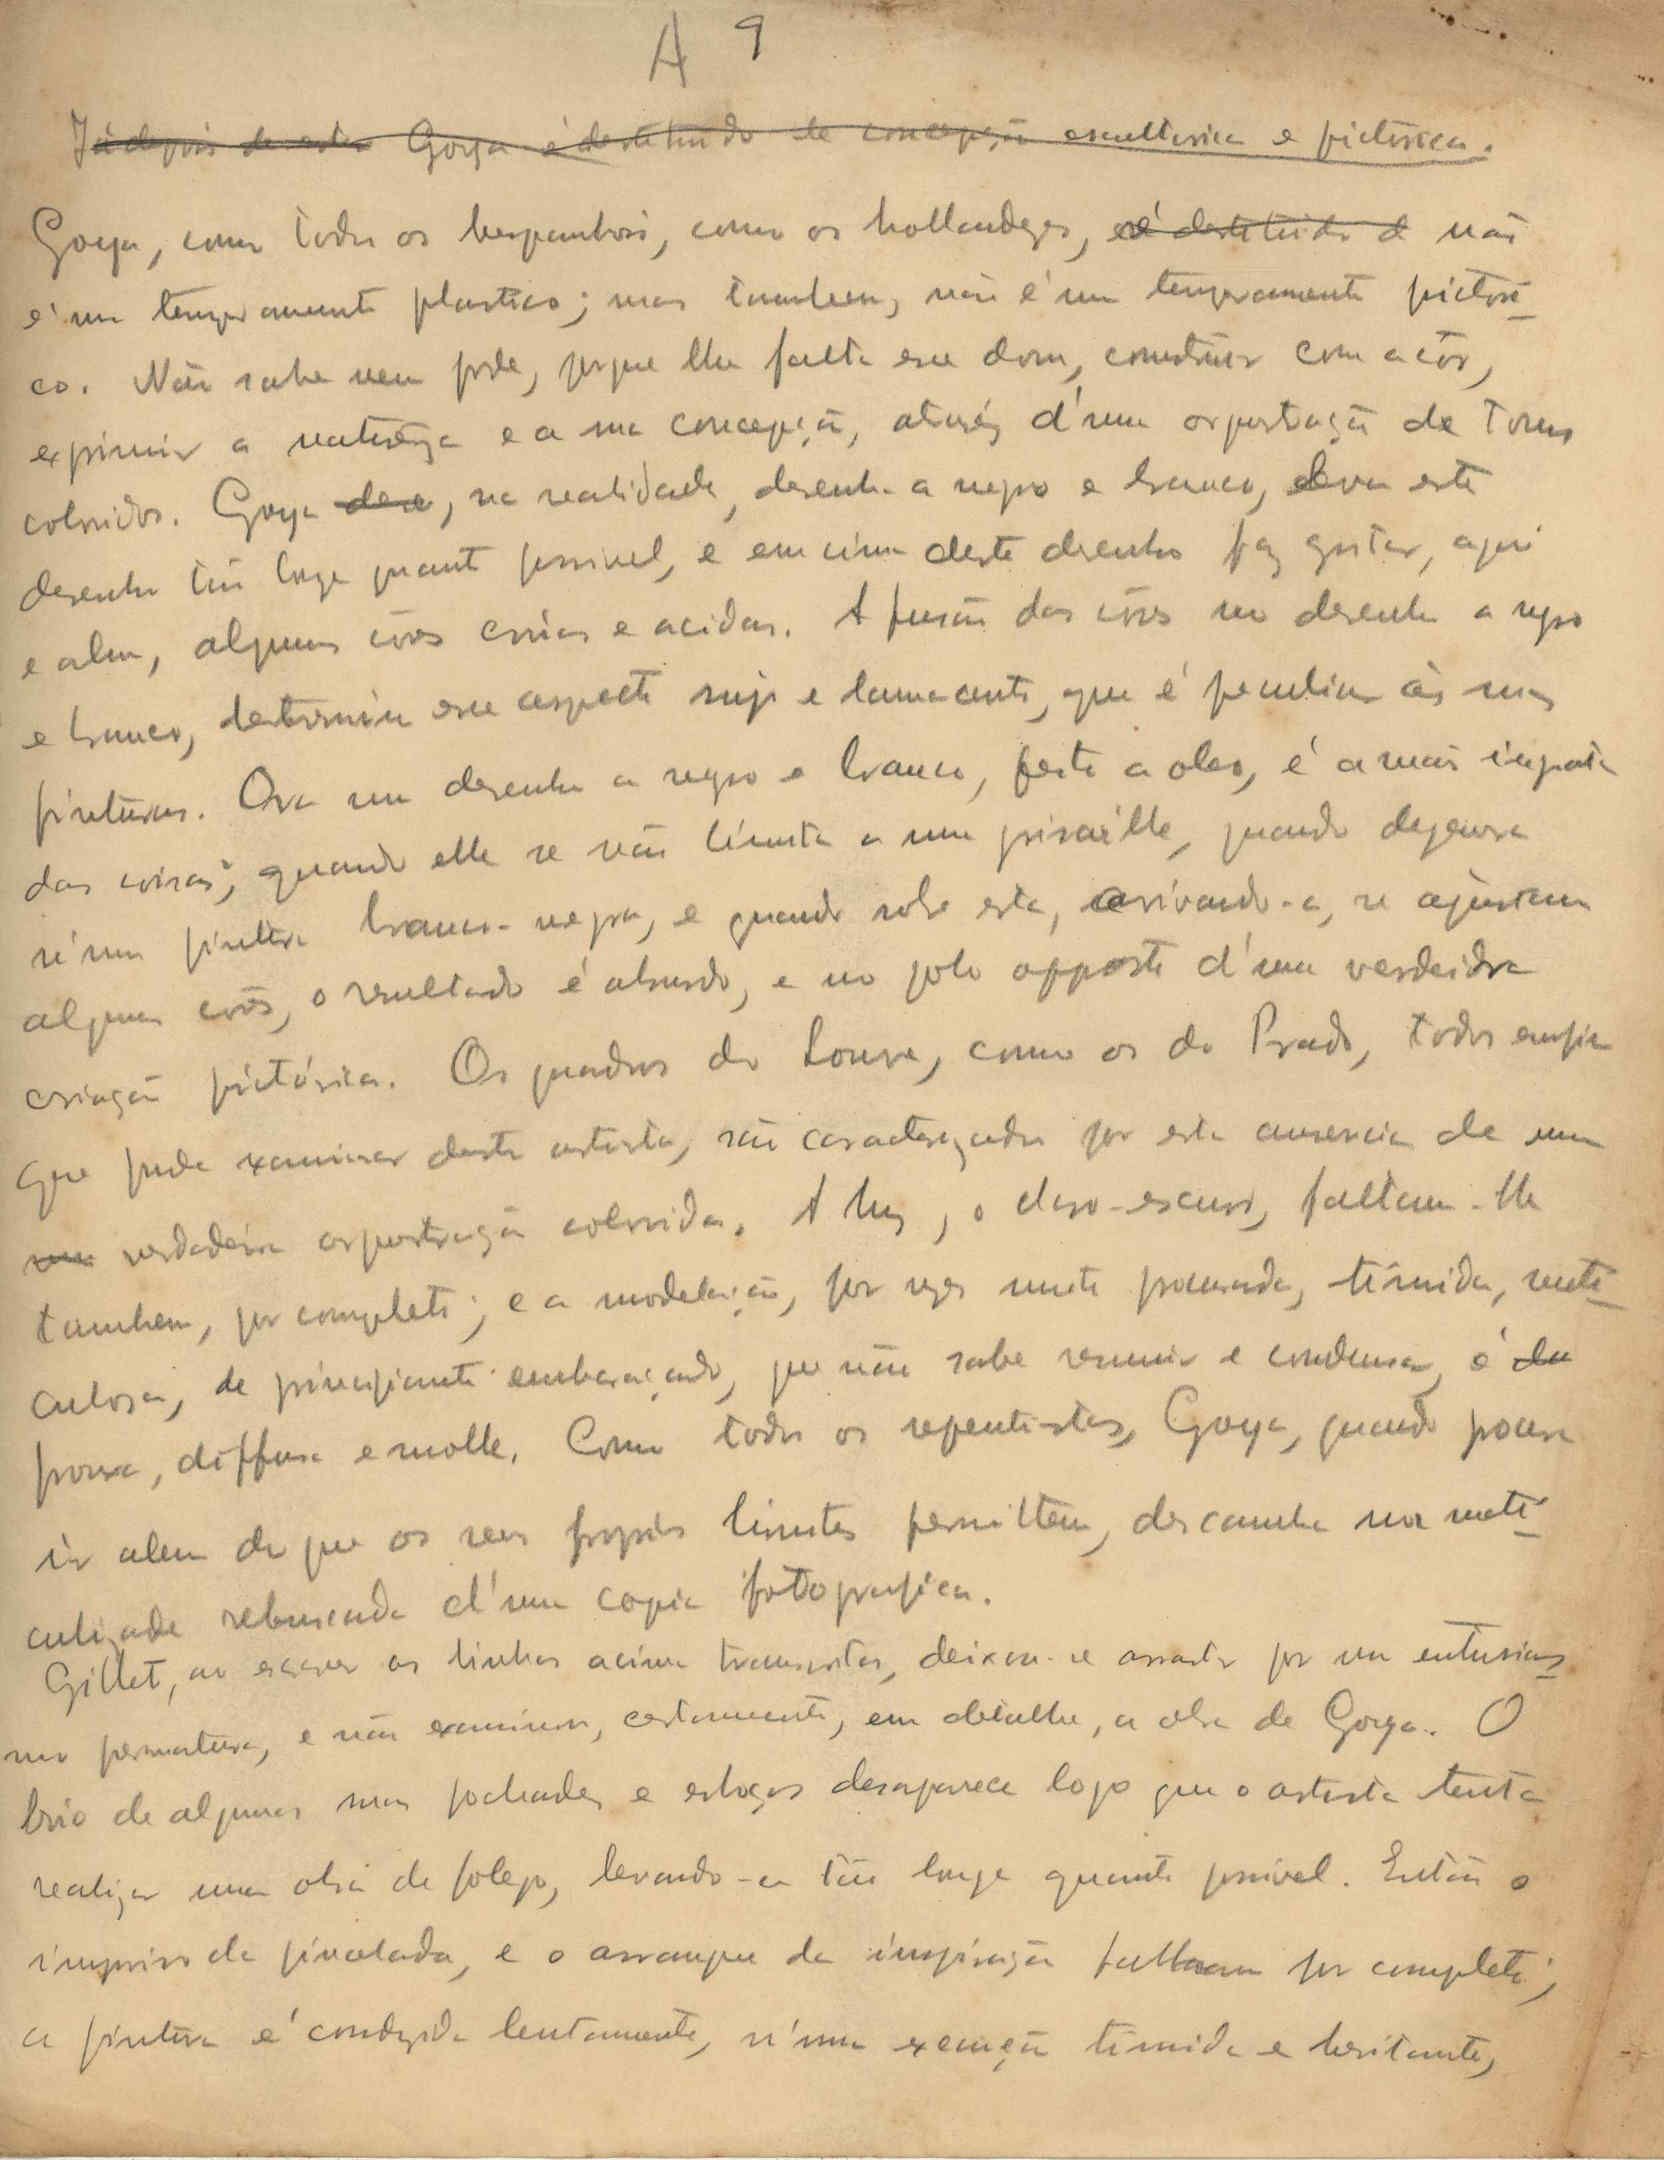 A 9
Já depois de estar Goya é destituido de concepção escultorica e pictorica.
Goya, como todos os hespanhois, como os hollandezes, é destituido d não
é um temperamento plastico; mas tambem, não é um temperamento pictori-
co. Não sabe nem póde, porque lhe falta esse dom, construir com a côr,
exprimir a natureza e a sua concepção, através d'uma orquestração de tons
coloridos. Goya, na realidade, desenha a negro e branco, leva este
desenho tão longe quanto possivel, e em cima deste desenho faz gritar, aqui
e alem, algumas côres cruas e acidas. A fusão das côres no desenho a negro
e branco, determina esse aspecto sujo e lamacento, que é peculiar ás suas
pinturas. Ora um desenho a negro e branco, feito a oleo, é a mais ingrata
das coisas; quando elle se não limita a uma grisaille, quando degenera
n'uma pintura branco-negra, e quando sobre esta, avivando-a, se ajustam
algumas côres, o resultado é absurdo, e no polo opposto d'uma verdadeira
criação pictórica. Os quadros do Louvre, como os do Prado, todos emfim
que pude examinar deste artista, são caracterizados por esta ausencia de uma
verdadeira orquestração colorida. A luz, o claro-escuro, faltam-lhe
tambem, por completo; e a modelação, por vezes muito procurada, timida, meti-
culosa, de principiante embaraçado, que não sabe resumir e condensar, é
frouxa, diffusa e molle. Como todos os repentistas, Goya, quando procura
ir alem do que os seus proprios limites permittem, descamba na meti-
culizade rebuscada d'uma copia fotografica.
Gillet, ao escrever as linhas acima transcritas, deixou-se arrastar por um entusias-
mo permatura, e não examinou, certamente, em detalhe, a obra de Goya. O
brio de algumas suas pochades e esboços desaparece logo que o artista tenta
realizar uma obra de folego, levando-a tão longe quanto possivel. Então o
improviso da pincelada, e o arranque da inspiração faltam por completo;
a pintura é conduzida lentamente, n'uma execução timida e hesitante,